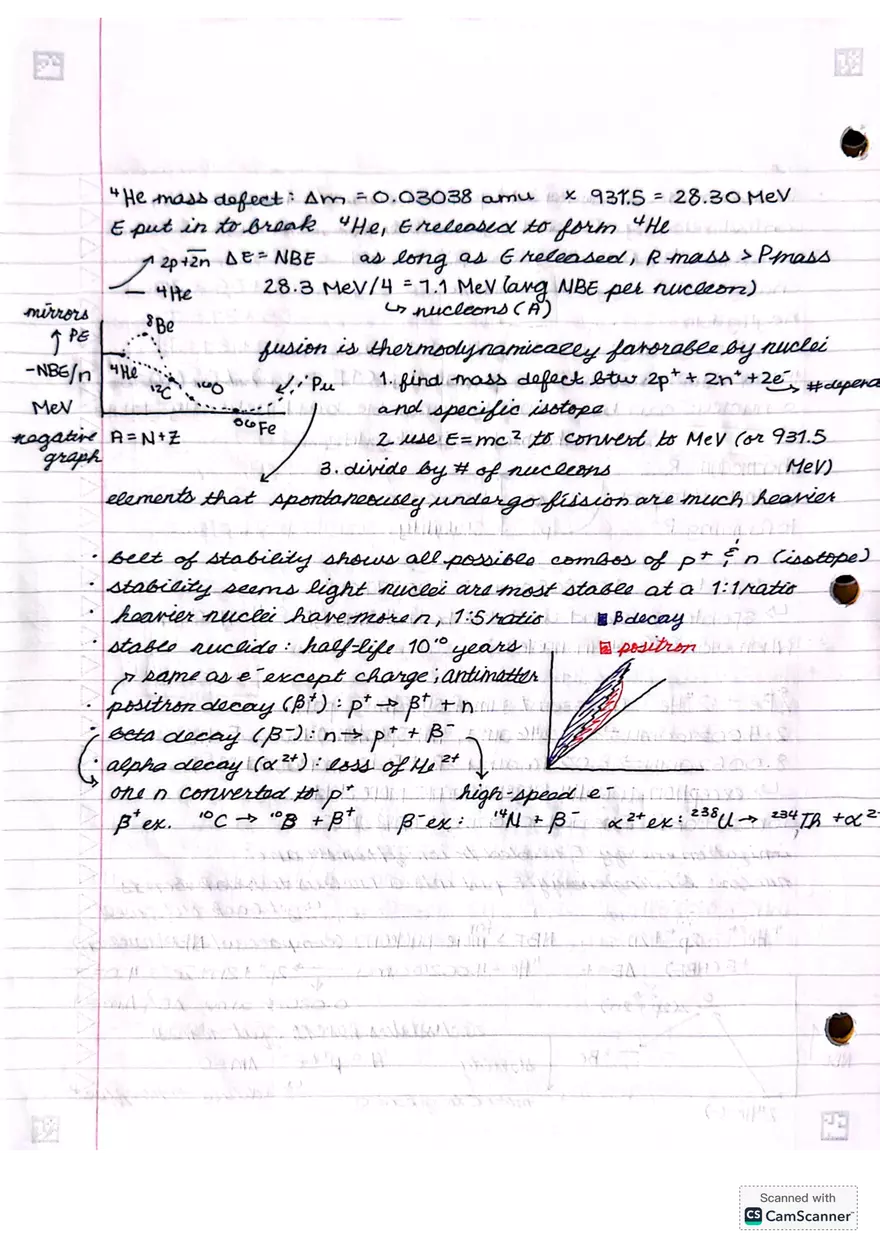 ⁴He mass defect: Δm = 0.03038 amu × 931.5 = 28.30 MeV
E put in to break ⁴He, E released to form ⁴He
2p+2n ΔE = NBE as long as E released, R mass > P mass
⁴He 28.3 MeV/4 = 7.1 MeV (avg NBE per nucleon)
↳ nucleons (A)
mirrors
↑ PE
-NBE/n
MeV
negative graph
⁸Be
⁴He
¹²C
¹⁶O
Pu
⁵⁶Fe
A = N+Z
fusion is thermodynamically favorable by nuclei
1. find mass defect btw 2p⁺ + 2n⁺ + 2e⁻ → # depend
and specific isotope
2. use E=mc² to convert to MeV (or 931.5
MeV)
3. divide by # of nucleons
elements that spontaneously undergo fission are much heavier
· belt of stability shows all possible combos of p⁺ & n (isotope)
· stability seems light nuclei are most stable at a 1:1 ratio
· heavier nuclei have more n, 1:5 ratio
β decay
· stable nuclide: half-life 10¹⁰ years
positron
↗ same as e⁻ except charge; antimatter
· positron decay (β⁺): p⁺ → β⁺ + n
· beta decay (β⁻): n → p⁺ + β⁻
· alpha decay (α²⁺): loss of He²⁺
one n converted to p⁺ high-speed e⁻
β⁺ ex. ¹⁰C → ¹⁰B + β⁺ β⁻ ex: ¹⁴N + β⁻ α²⁺ ex: ²³⁸U → ²³⁴Th + α²
Scanned with
CS CamScanner